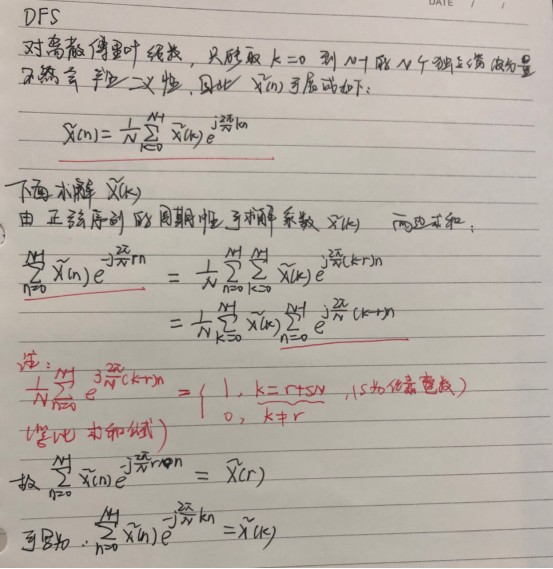 DATE / /
DFS
对离散傅里叶级数，只能取 k=0 到 N-1 的 N个独立谐波分量
不然会产生二义性，因此 x̃(n)可展成如下：
x̃(n) = 1/N ∑_{k=0}^{N-1} X̃(k) e^{j(2π/N)kn}
下面求解 X̃(k)
由正弦序列的周期性可求解系数 X̃(k) 两边求和：
∑_{n=0}^{N-1} x̃(n) e^{-j(2π/N)rn} = 1/N ∑_{n=0}^{N-1} ∑_{k=0}^{N-1} X̃(k) e^{j(2π/N)(k-r)n}
= 1/N ∑_{k=0}^{N-1} X̃(k) ∑_{n=0}^{N-1} e^{j(2π/N)(k-r)n}
注：
1/N ∑_{n=0}^{N-1} e^{j(2π/N)(k-r)n} = { 1, k=r+SN, (S为任意整数)
0, k≠r
(等比求和公式)
故 ∑_{n=0}^{N-1} x̃(n) e^{-j(2π/N)rn} = X̃(r)
可写为: ∑_{n=0}^{N-1} x̃(n) e^{-j(2π/N)kn} = X̃(k)